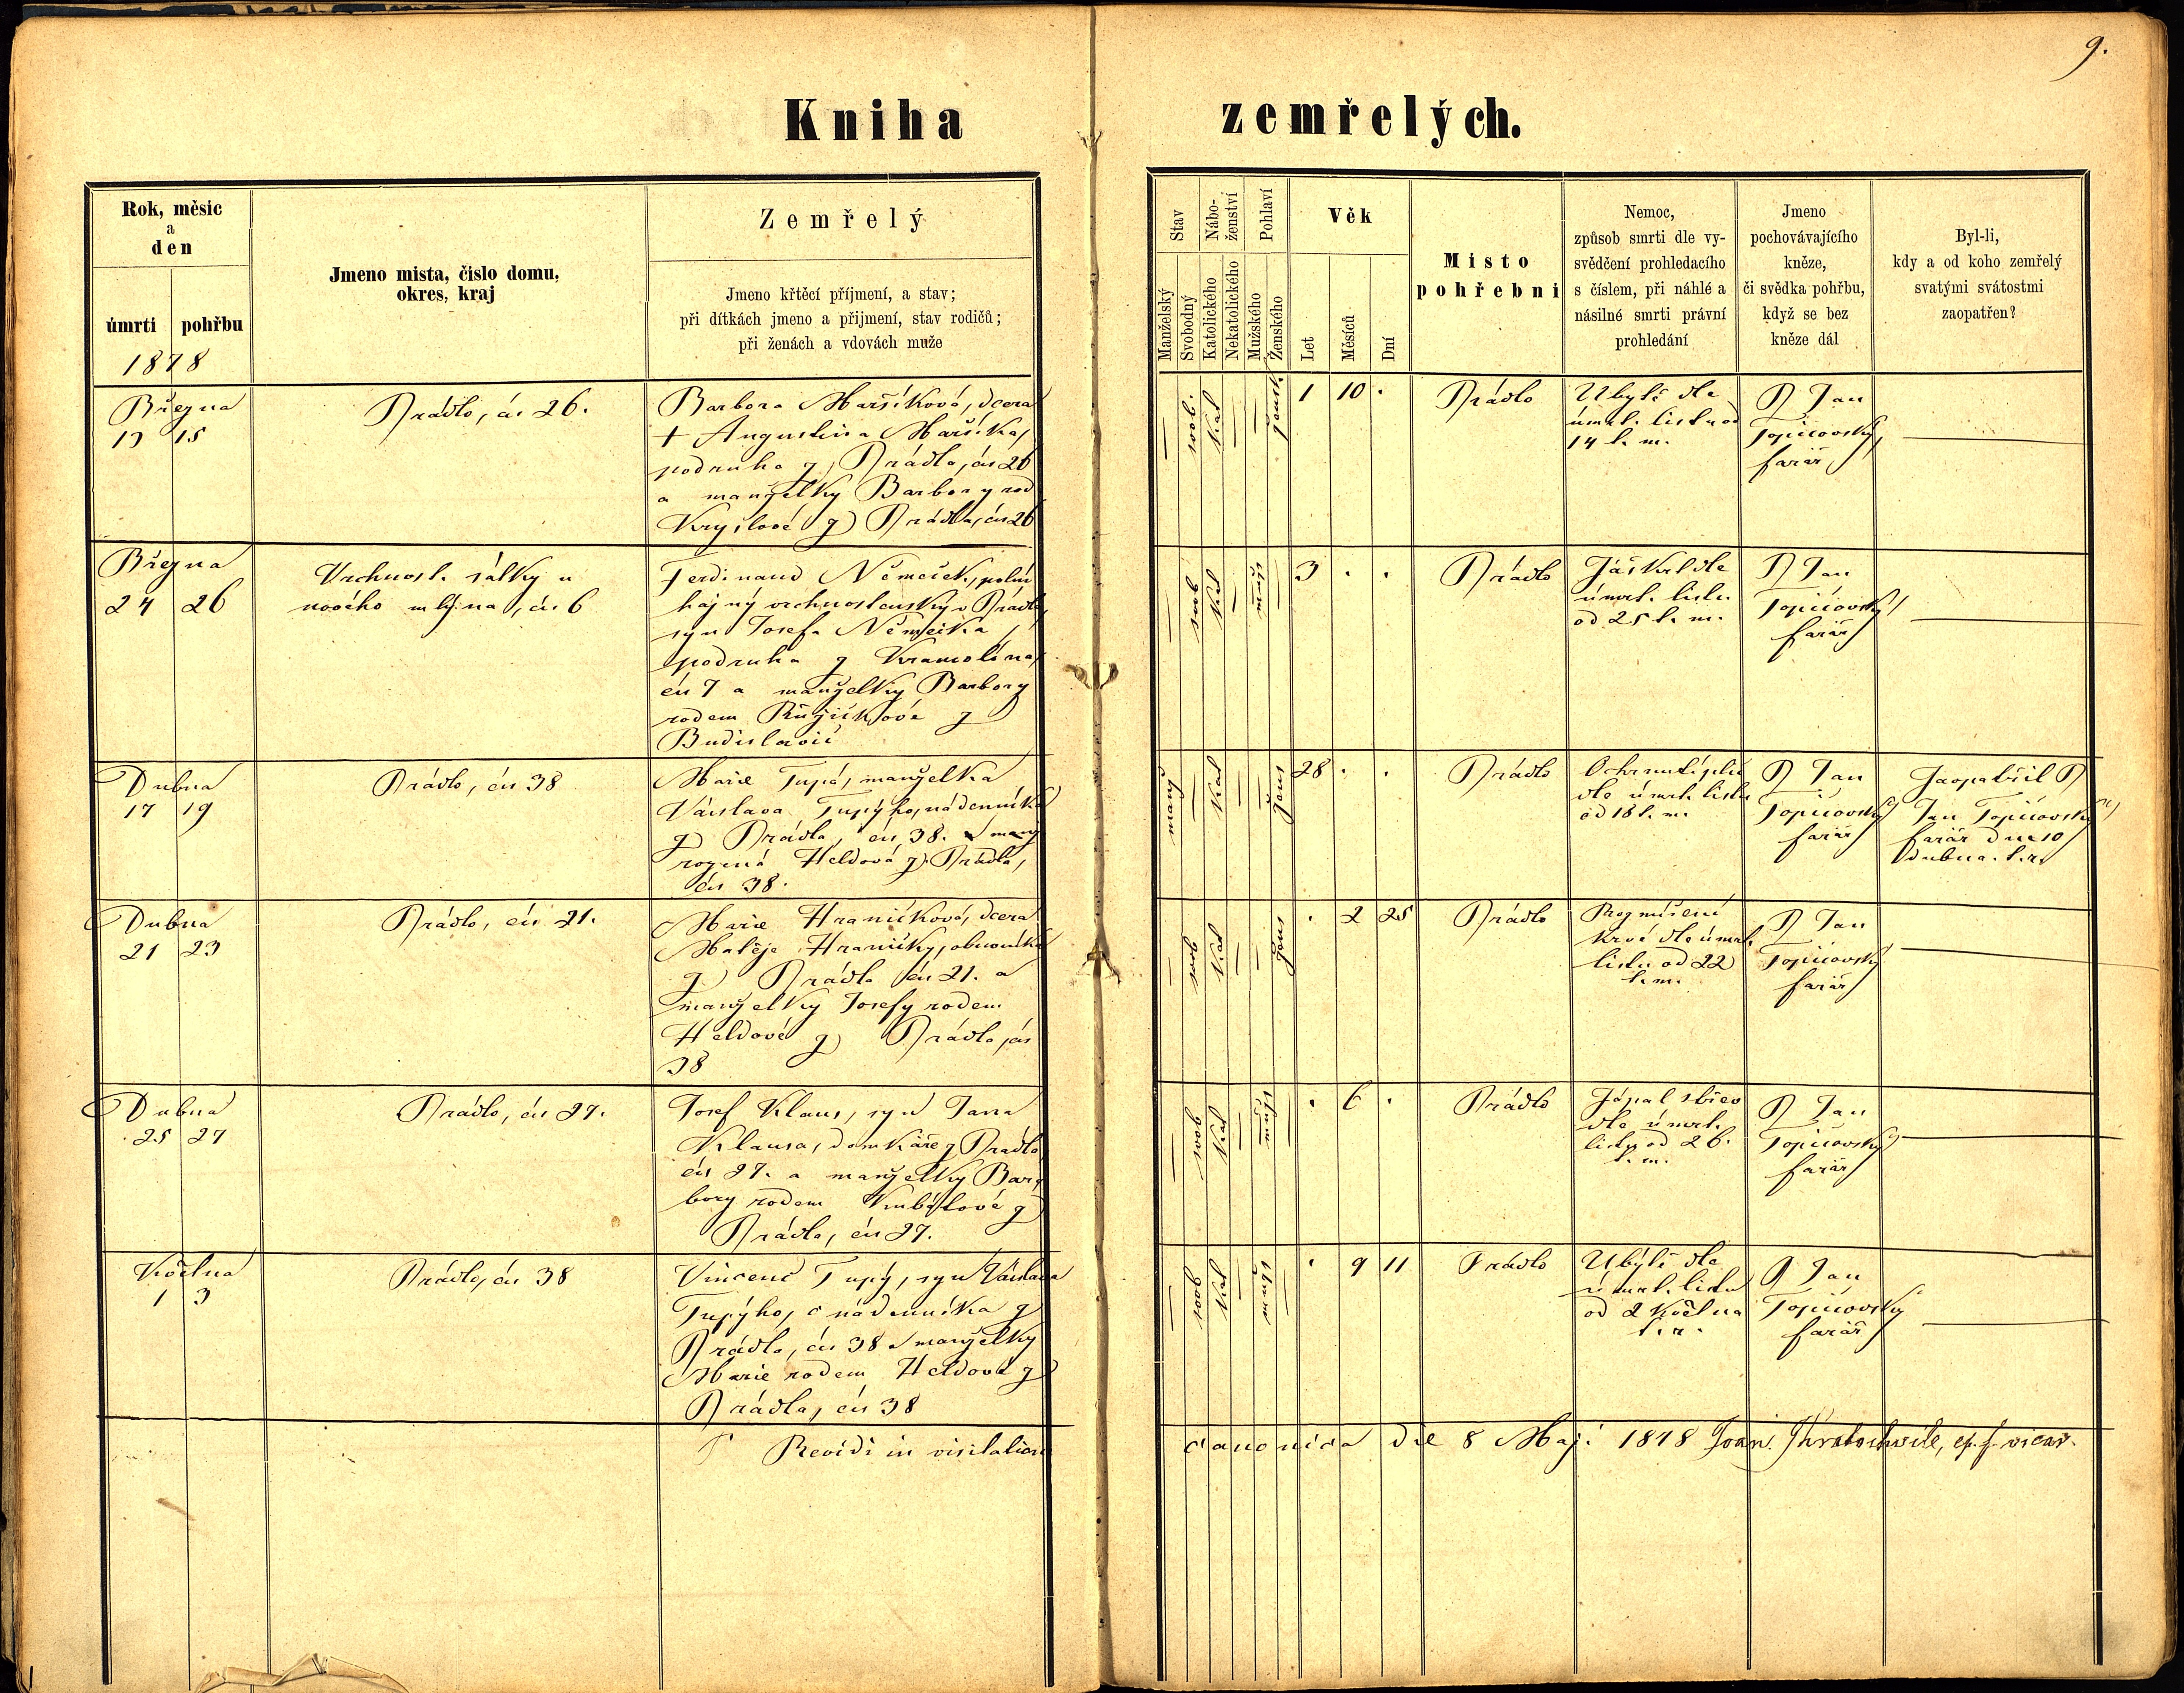 9.
Kniha zemřelých.
Rok, měsic
a
den
úmrti pohřbu
1878
Jmeno mista, čislo domu,
okres, kraj
Zemřelý
Jmeno křtěcí příjmení, a stav;
při dítkách jmeno a přijmení, stav rodičů;
při ženách a vdovách muže
Stav
Manželský
Svobodný
Nábo-
ženství
Katolického
Nekatolického
Pohlaví
Mužského
Ženského
Věk
Let
Měsíců
Dní
Misto
pohřebni
Nemoc,
způsob smrti dle vy-
svědčení prohledacího
s číslem, při náhlé a
násilné smrti právní
prohledání
Jmeno
pochovávajícího
kněze,
či svědka pohřbu,
když se bez
kněze dál
Byl-li,
kdy a od koho zemřelý
svatými svátostmi
zaopatřen?
Března
13 15
Prádlo, čís 26.
Barbora Maršíková, dcera
+ Augustina Maršíka,
podruha z Prádla, čís 26
a manželky Barbory rod
z Prádla, čís 26
svob. kat žensk.
1 10 .
Prádlo
Ubytí dle
úmrt. listu od
14 t. m.
P Jan
Topičovský,
farář
Března
24 26
Vrchnost. sálky u
nového mlýna, čís. 6
Ferdinand Němeček,
hajný vrchnostenský v Prádle,
syn Josefa Němečka,
podruha z Kramolína,
čís 7 a manželky Barbory
rodem Růžičkové z
Budislavic
svob kat muž
3 . .
Prádlo
Záškrt dle
úmrt. listu
od 25 t. m.
P Jan
Topičovský,
farář
Dubna
17 19
Prádlo, čís 38
Marie Tupá, manželka
Václava Tupýho, nádenníka
z Prádla, čís 38.
rozená Heldová z Prádla,
čís 38.
manž kat žens
28 . .
Prádlo
Ochrnutí plic
dle úmrt. listu
od 18 t. m.
P Jan
Topičovský
farář
Zaopatřil P
Jan Topičovský,
farář dne 10
dubna. t. r.
Dubna
21 23
Prádlo, čís 21.
Marie Hraničková, dcera
Matěje Hraničky, obuvníka
z Prádla čís 21. a
manželky Josefy rodem
Heldové z Prádla, čís
38
svob kat žens
. 2 25
Prádlo
krve dle úmrt.
listu od 22
t. m.
P Jan
Topičovský
farář
Dubna
25 27
Prádlo, čís 27.
Josef Klaus, syn Jana
Klausa, domkáře z Prádla
čís 27. a manželky Bar-
bory rodem z
Prádla, čís 27.
svob kat muž
. 6 .
Prádlo
Zápal střev
dle úmrt.
listu od 26.
t. m.
P Jan
Topičovský
farář
Května
1 3
Prádlo, čís 38
Vincenc Tupý, syn Václava
Tupýho, nádenníka z
Prádla, čís 38 a manželky
Marie rodem Heldová z
Prádla, čís 38
svob kat muž
. 9 11
Prádlo
Ubýtí dle
úmrt. listu
od 2 Května
t. r.
P Jan
Topičovský
farář
Revidi in visitatione canonica die 8 Maji 1878 Joan. Kratochwile, ep. f. vicar.